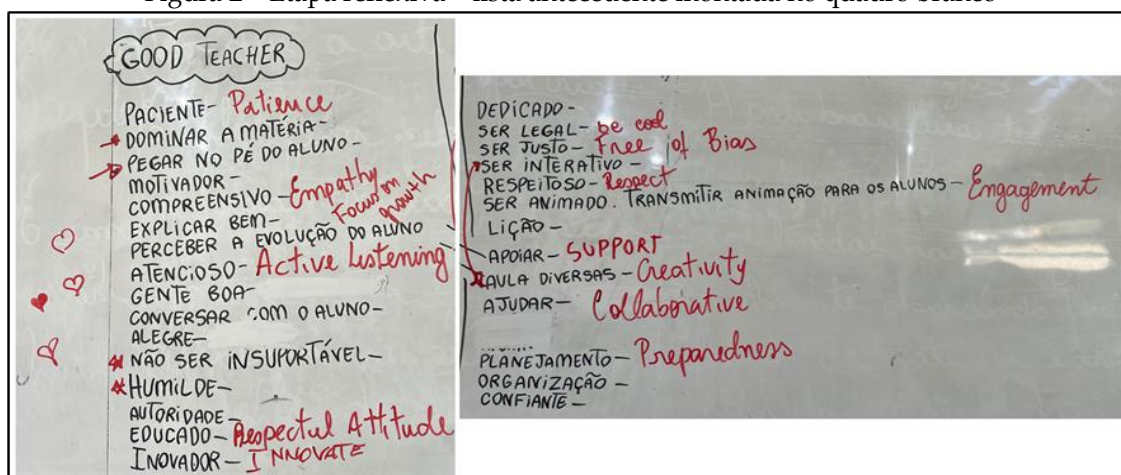 GOOD TEACHER
PACIENTE- Patience
DOMINAR A MATÉRIA-
PEGAR NO PÉ DO ALUNO-
MOTIVADOR-
COMPREENSIVO-Empathy
EXPLICAR BEM-
Focus on growth
PERCEBER A EVOLUÇÃO DO ALUNO
ATENCIOSO- Active Listening
GENTE BOA-
CONVERSAR COM O ALUNO-
ALEGRE-
NÃO SER INSUPORTÁVEL-
HUMILDE-
AUTORIDADE-
EDUCADO- Respectul Attitude
INOVADOR- INNOVATE
DEDICADO-
SER LEGAL- be cool
SER JUSTO- Free of Bias
SER INTERATIVO-
RESPEITOSO- Respect
SER ANIMADO. TRANSMITIR ANIMAÇÃO PARA OS ALUNOS- Engagement
LIÇÃO-
APOIAR- SUPPORT
AULA DIVERSAS- Creativity
AJUDAR- Collaborative
PLANEJAMENTO- Preparedness
ORGANIZAÇÃO-
CONFIANTE-